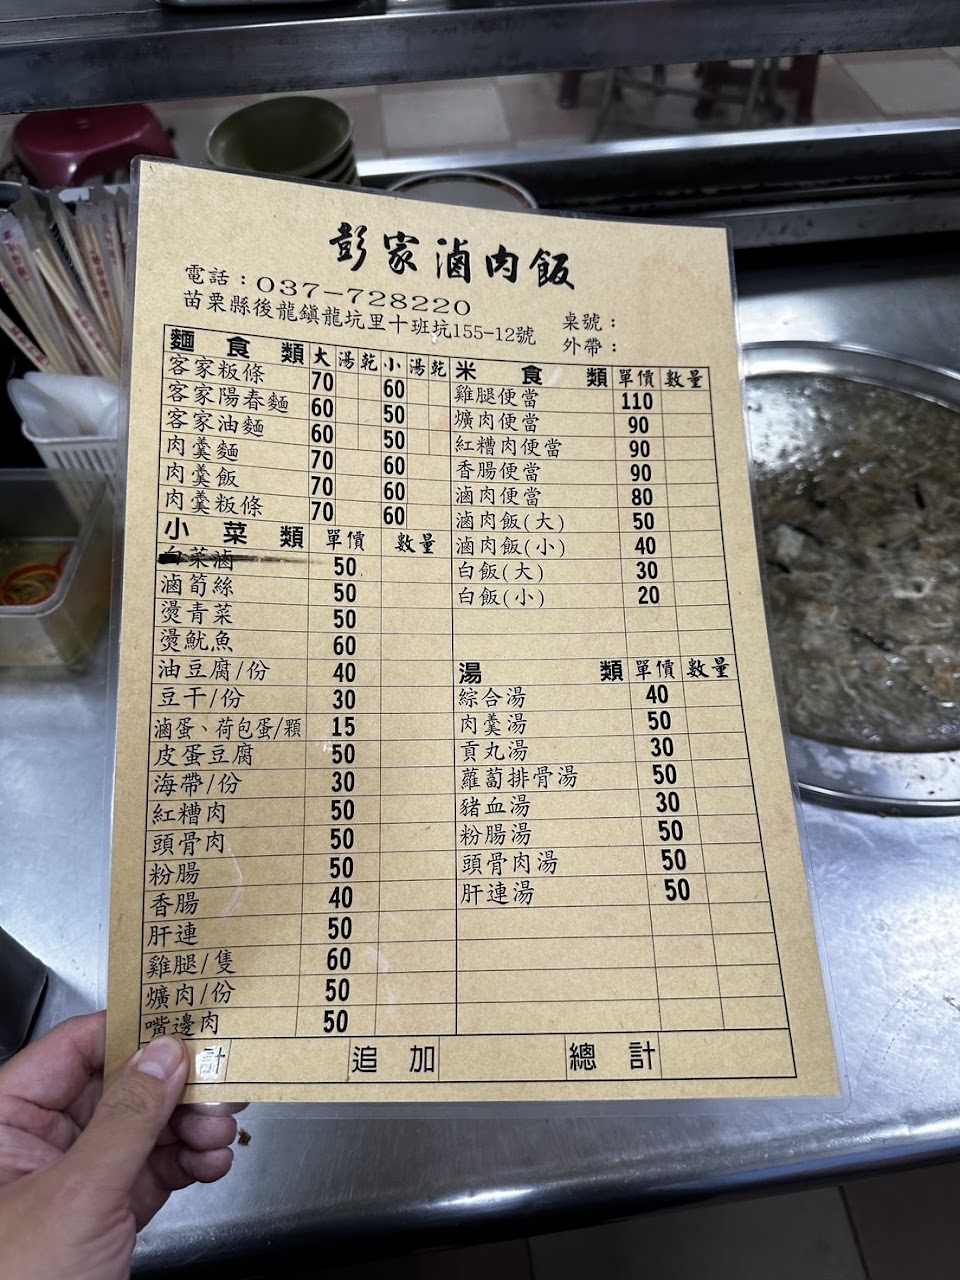 彭家滷肉飯
電話：037-728220
苗栗縣後龍鎮龍坑里十班坑155-12號
桌號：
外帶：
麵食類 大 湯 乾 小 湯 乾
客家粄條 70 60
客家陽春麵 60 50
客家油麵 60 50
肉羹麵 70 60
肉羹飯 70 60
肉羹粄條 70 60
小菜類 單價 數量
白菜滷 50
滷筍絲 50
燙青菜 50
燙魷魚 60
油豆腐/份 40
豆干/份 30
滷蛋、荷包蛋/顆 15
皮蛋豆腐 50
海帶/份 30
紅糟肉 50
頭骨肉 50
粉腸 50
香腸 40
肝連 50
雞腿/隻 60
爌肉/份 50
嘴邊肉 50
米食類 單價 數量
雞腿便當 110
爌肉便當 90
紅糟肉便當 90
香腸便當 90
滷肉便當 80
滷肉飯(大) 50
滷肉飯(小) 40
白飯(大) 30
白飯(小) 20
湯類 單價 數量
綜合湯 40
肉羹湯 50
貢丸湯 30
蘿蔔排骨湯 50
豬血湯 30
粉腸湯 50
頭骨肉湯 50
肝連湯 50
計 追加 總計